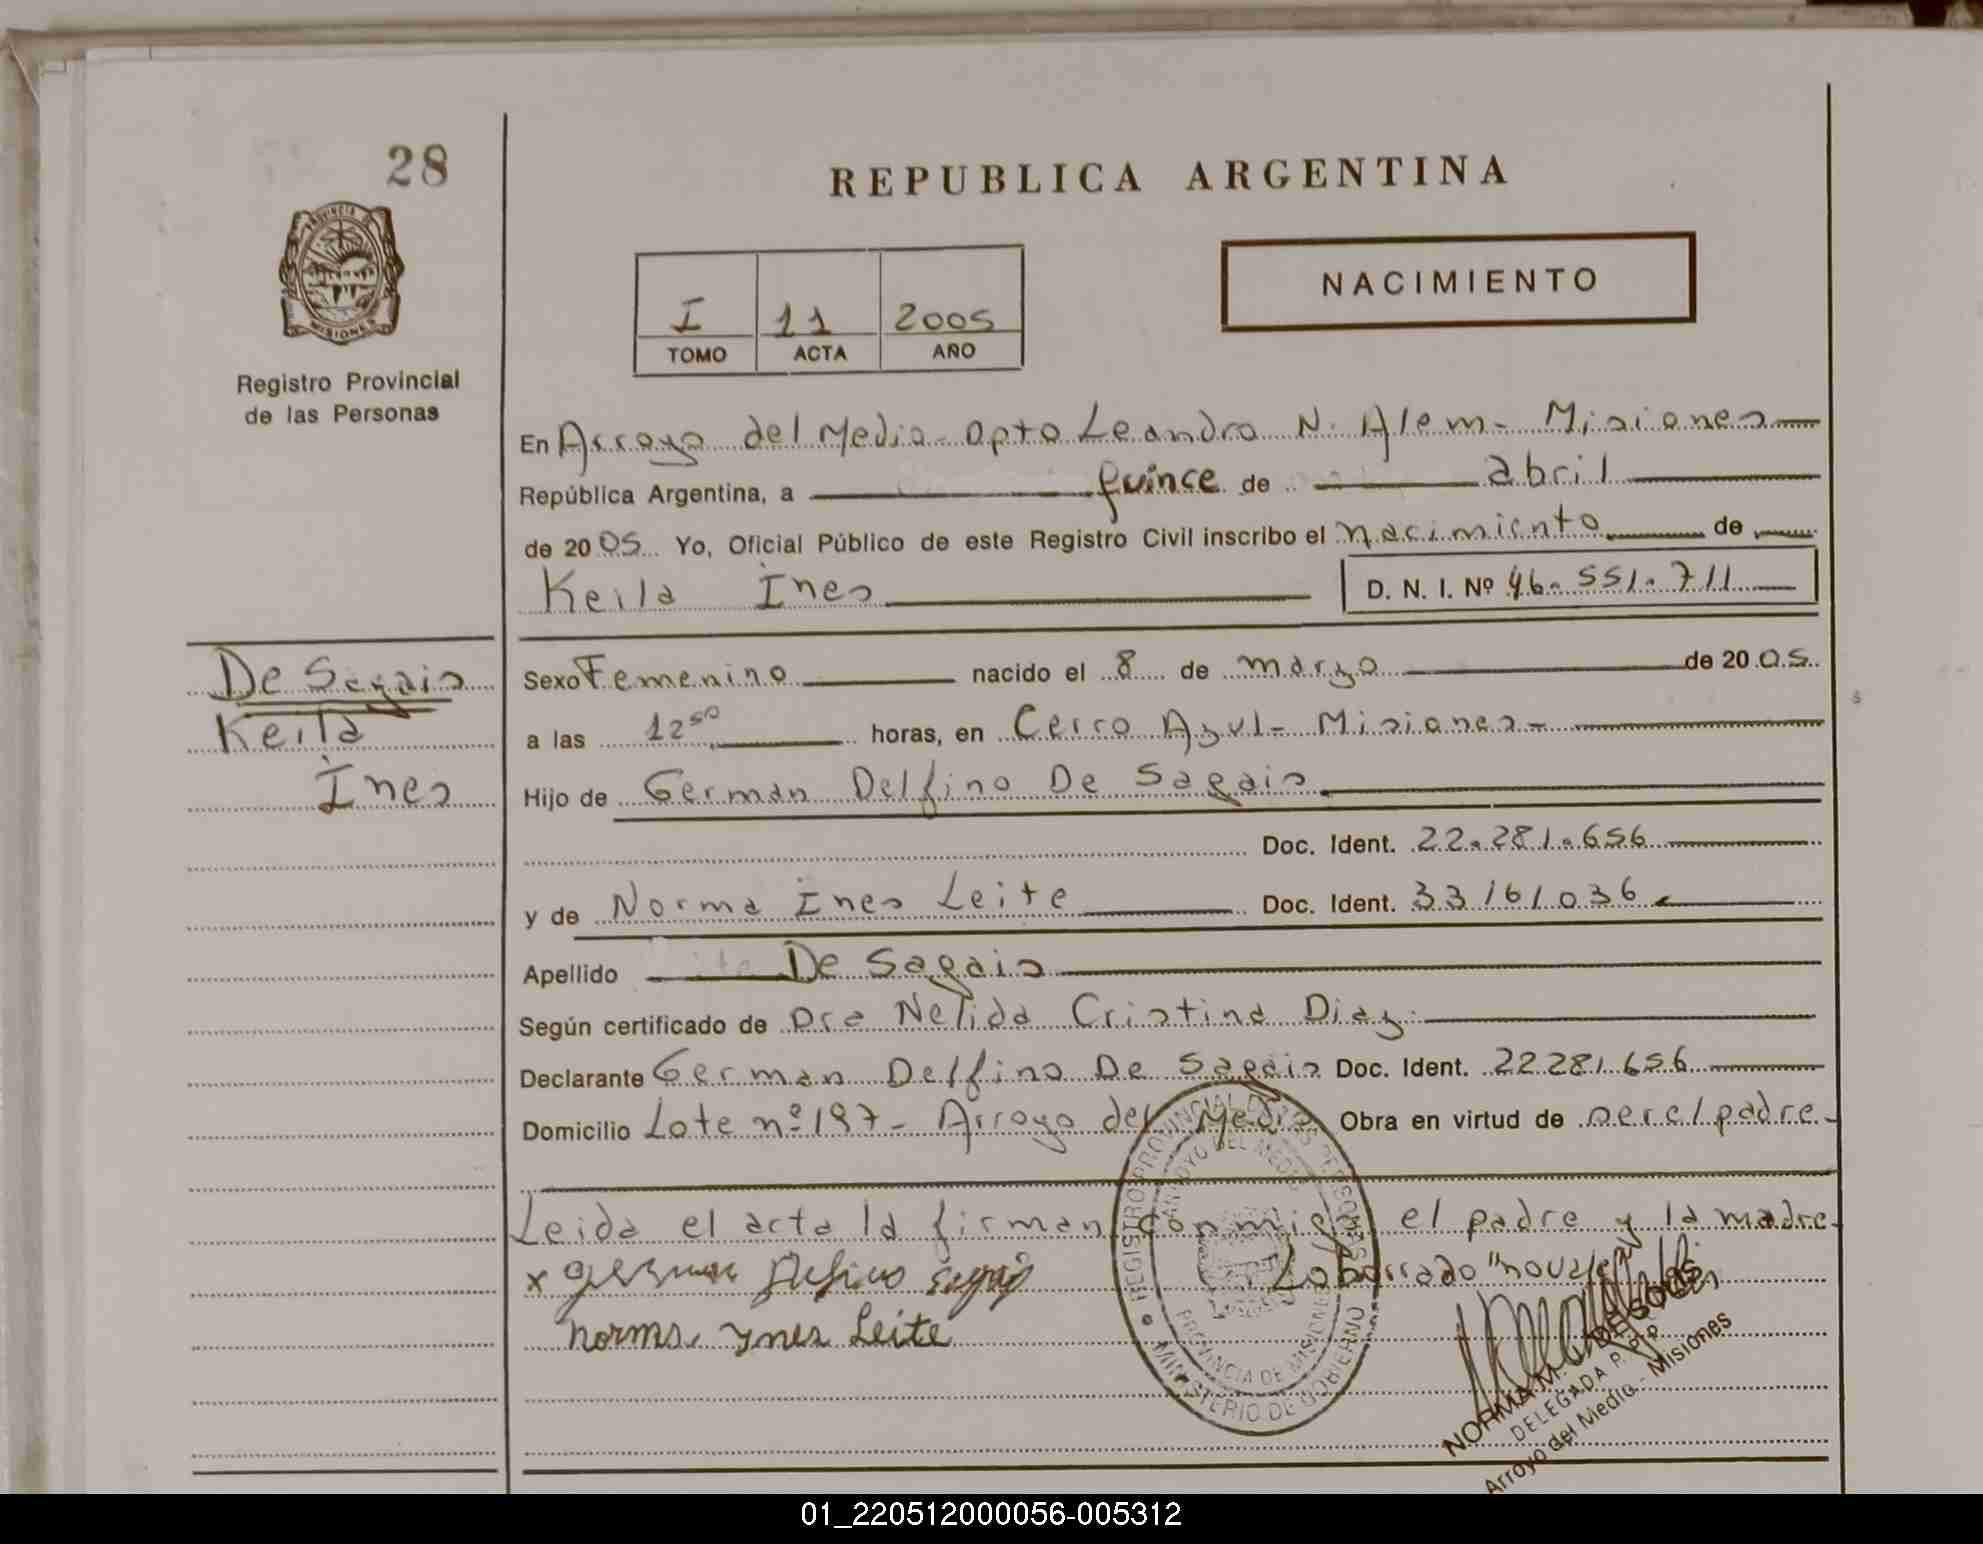 28
REPUBLICA ARGENTINA
PROVINCIA DE
MISIONES
Registro Provincial
de las Personas
NACIMIENTO
I 11 2005
TOMO ACTA AÑO
En Arroyo del Medio - Dpto Leandro N. Alem - Misiones
República Argentina, a quince de abril
de 2005 Yo, Oficial Público de este Registro Civil inscribo el nacimiento de
Keila Ines D. N. I. Nº 46.551.711
De Sagais
Keila
Ines
Sexo Femenino nacido el 8 de marzo de 2005
a las 12 50 horas, en Cerro Azul - Misiones -
Hijo de German Delfino De Sagais
Doc. Ident. 22.281.656
y de Norma Ines Leite Doc. Ident. 33161036
Apellido De Sagais
Según certificado de Dra Nelida Cristina Diaz
Declarante German Delfino De Sagais Doc. Ident. 22281656
Domicilio Lote nº 197 - Arroyo del Medio Obra en virtud de ser el padre -
Leida el acta la firman conmigo el padre y la madre
x German Delfino Sagais
Lo borrado
norma ynes Leite
REGISTRO PROVINCIAL DE LAS PERSONAS
ARROYO DEL MEDIO
PROVINCIA DE MISIONES
MINISTERIO DE GOBIERNO
NORMA M.
DELEGADA R. P. P.
Arroyo del Medio - Misiones
01_220512000056-005312